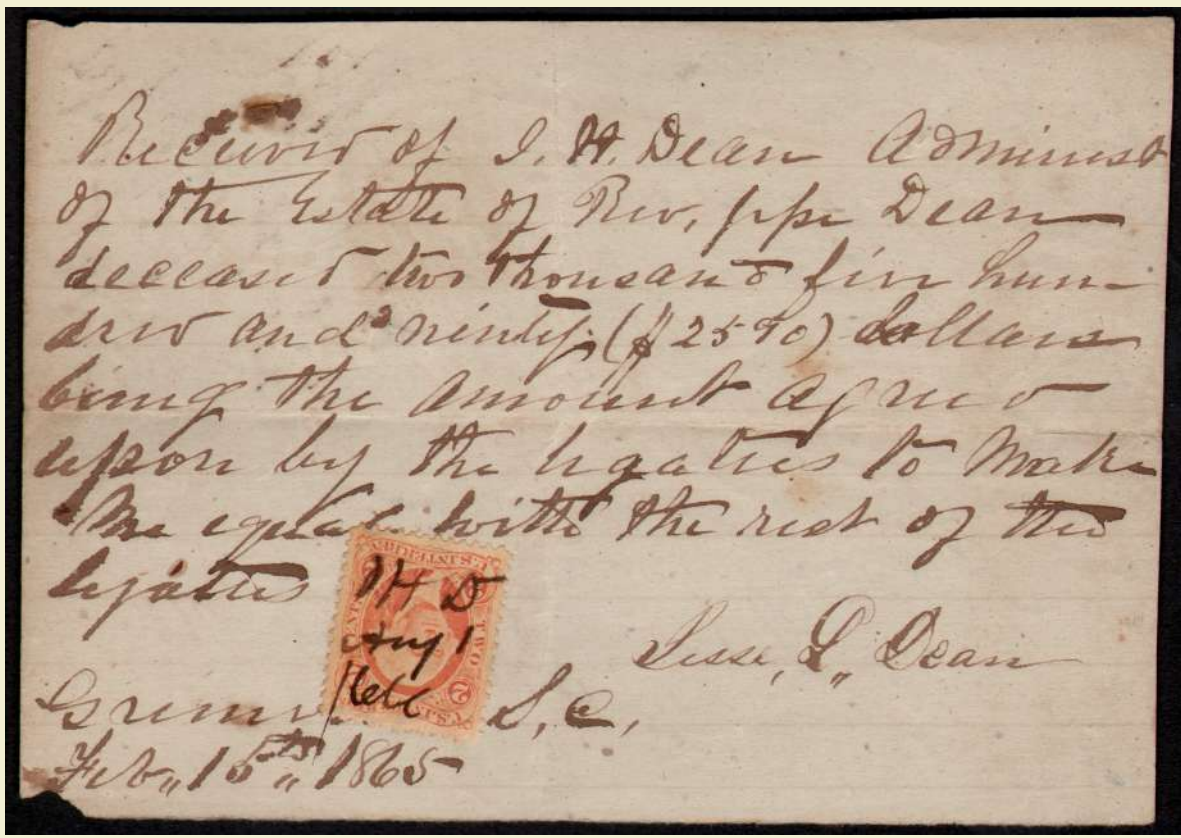 Received of J. H. Dean Administ
of the Estate of Rev, Jesse Dean
deceased two thousand five hun-
dred and ninety ($2590) dollars
being the amount agreed
upon by the legatees to make
me equal with the rest of the
legatees
Jesse, L,, Dean
S, C,
Feb,, 15th,, 1865
U.S. INTER
TWO
2
H D
Aug 1
1866